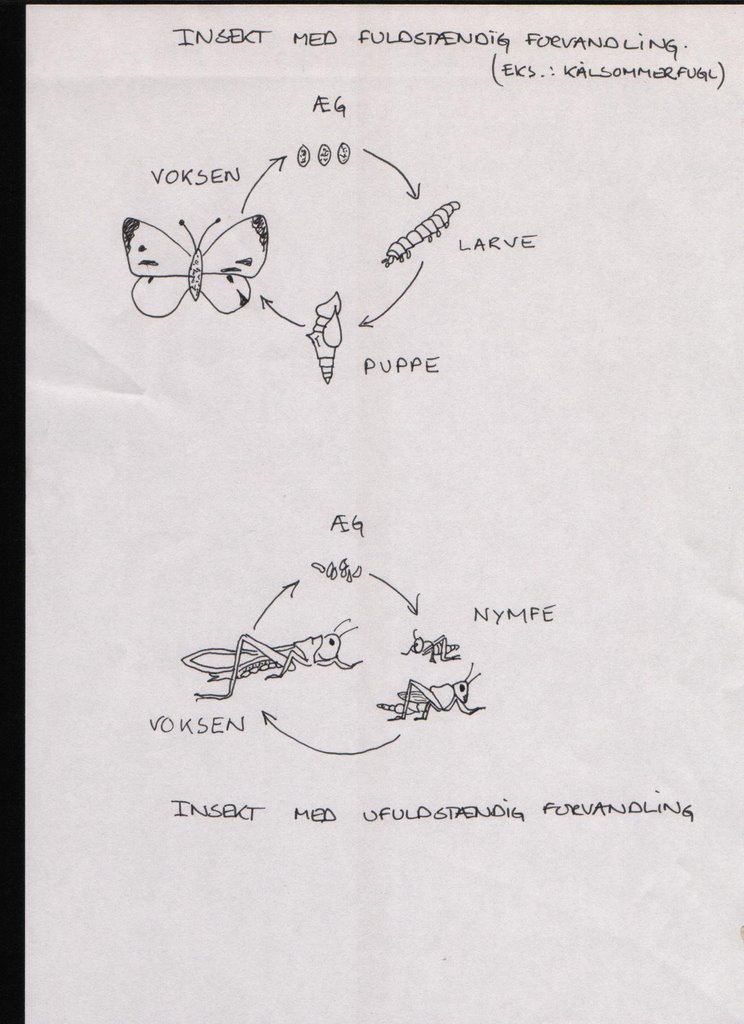 INSEKT MED FULDSTÆNDIG FORVANDLING.
(EKS.: KÅLSOMMERFUGL)
ÆG
VOKSEN
LARVE
PUPPE
ÆG
NYMFE
VOKSEN
INSEKT MED UFULDSTÆNDIG FORVANDLING